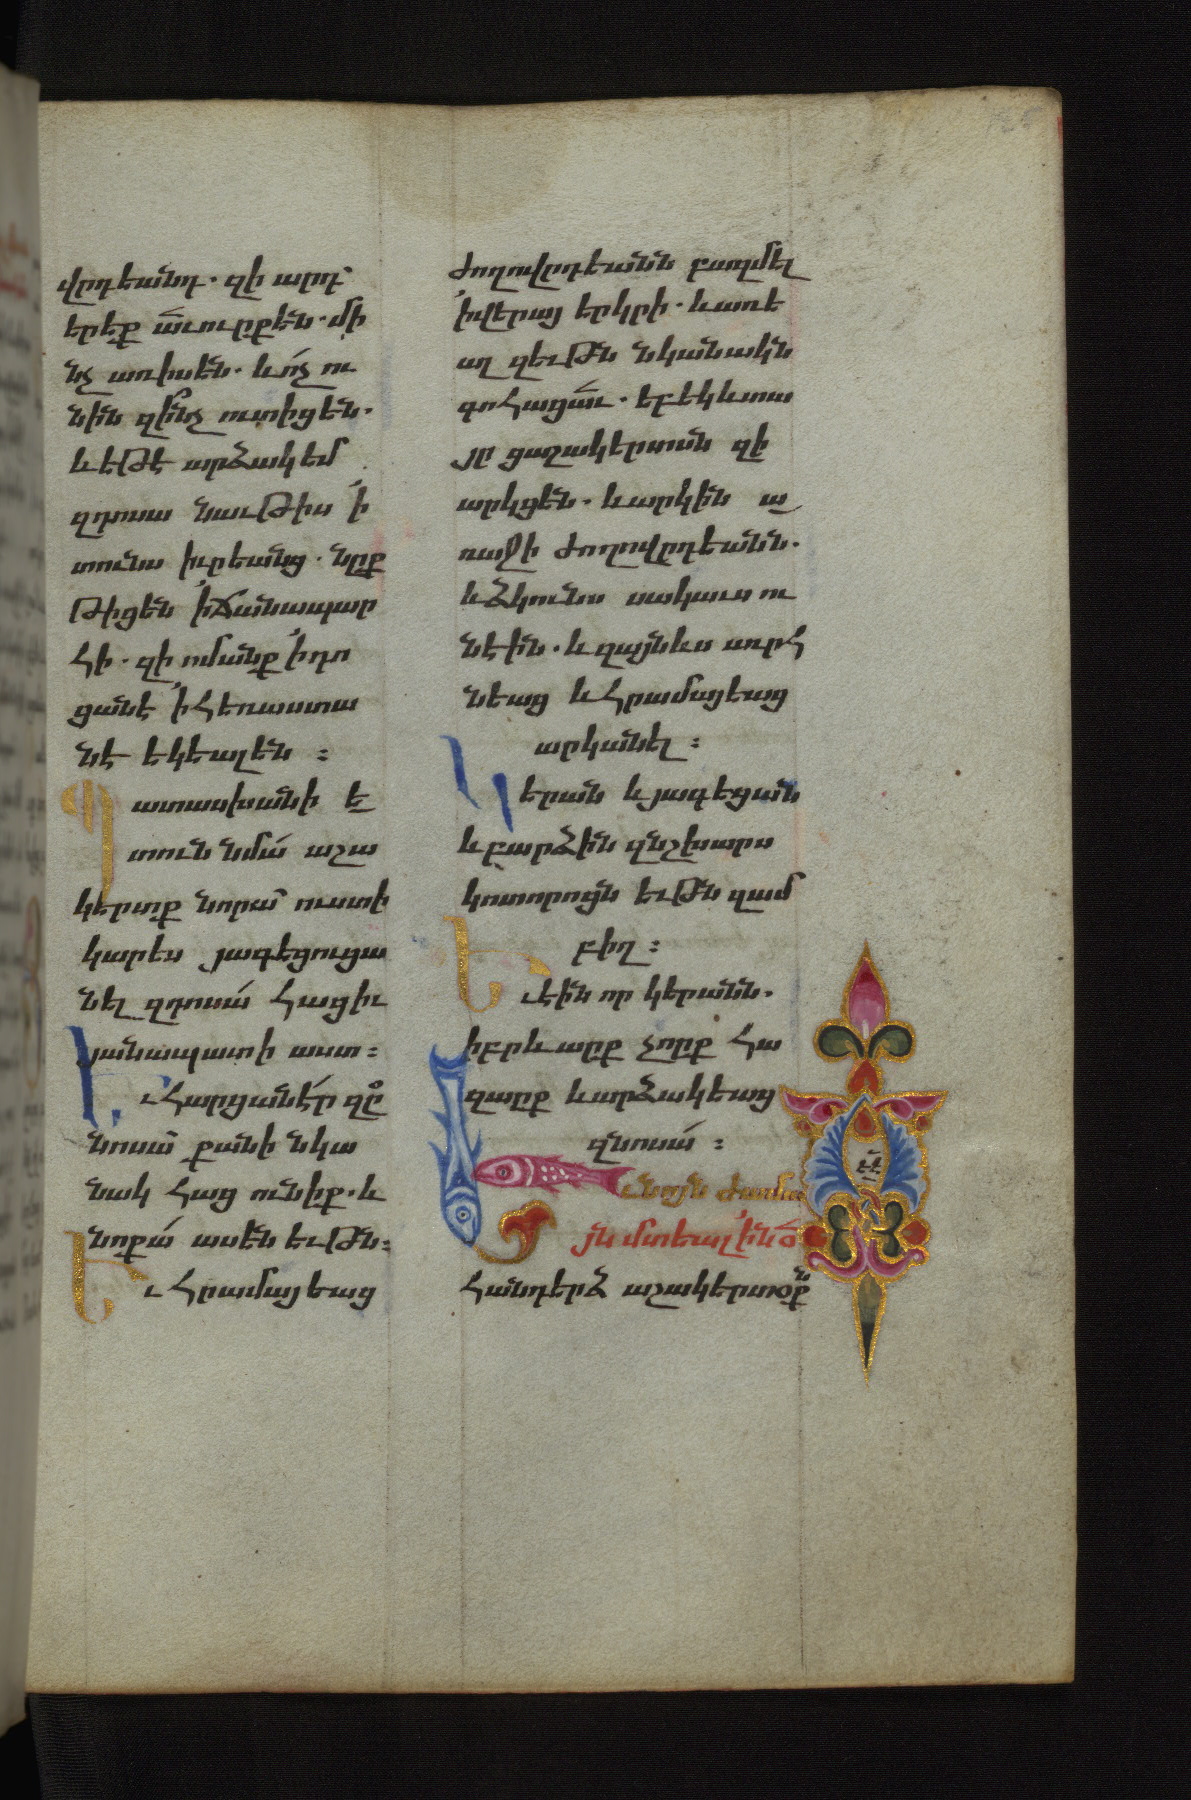 վրդեանդ. զի արդ՝
երեք աւուրք են. մի
նչ առ իս են. և ոչ ու
նին զինչ ուտիցեն.
և եթէ արձակեմ
զդոսա նաւթիս ի
տունս իւրեանց. նըք
թիցեն ի ճանապար
հի. զի ոմանք ի դո
ցանէ ի հեռաստա
նէ եկեալ են :
Պատասխանի ե
տուն նմա աշա
կերտք նորա՝ ուստի
կարես յագեցուցա
նել զդոսա հացիւ
յանապատի աստ :
Եւ հարցանէր զը
նոսա՝ քանի նկա
նակ հաց ունիք. և
նոքա ասեն եւթն :
Եւ հրամայեաց
ժողովրդեանն բազմել
ի վերայ երկրի. և առե
ալ զեւթն նկանակն
գոհացաւ. եբեկ և տա
յր ցաշակերտսն զի
արկցեն. և արկին ա
ռաջի ժողովրդեանն.
և ձկունս սակաւս ու
նէին. և զայն ևս աւրհ
նեաց և հրամայեաց
արկանել :
Կերան և յագեցան
և բարձին զնշխարս
կոտորոցն եւթն զամ
բիղ :
Եւ էին որ կերանն.
իբրև արք չորք հա
զարք և արձակեաց
զնոսա :
Եւ նոյն ժամա
յն մտեալ ի նւ
հանդերձ աշակերտօքն